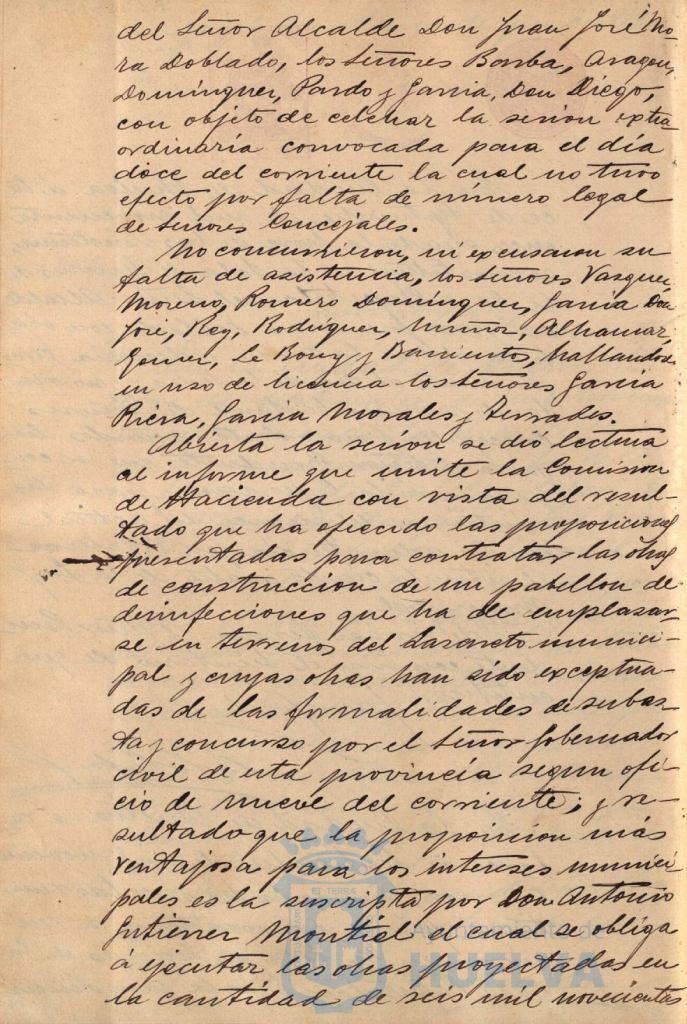 del Señor Alcalde Don Juan José Mo-
ra Doblado, los Señores Barba, Aragon,
Dominguez, Pardo y Garcia, Don Diego,
con objeto de celebrar la sesion extra
ordinaria convocada para el día
doce del corriente la cual no tuvo
efecto por falta de número legal
de Señores Concejales.
No concurrieron, ni excusaron su
falta de asistencia, los Señores Vazquez,
Moreno, Romero Dominguez, Garcia Don
José, Rey, Rodriguez, Muñoz, Alhamar,
Gomez, Le Bourg y Barrientos, hallandose
en uso de licencia los Señores Garcia
Riera, Garcia Morales y Terrades.
Abierta la sesion se dió lectura
al informe que emite la Comision
de Hacienda con vista del resul-
tado que ha ofrecido las proposiciones
presentadas para contratar las obras
de construccion de un pabellon de
desinfecciones que ha de emplazar-
se en terrenos del Lazareto munici-
pal y cuyas obras han sido exceptua-
das de las formalidades de subas-
ta y concurso por el Señor Gobernador
civil de esta provincia segun ofi-
cio de nueve del corriente; y re-
sultado que la proposicion más
ventajosa para los intereses munici
pales es la suscripta por Don Antonio
Gutierrez Montiel el cual se obliga
á ejecutar las obras proyectadas en
la cantidad de seis mil novecientas
HUELVA